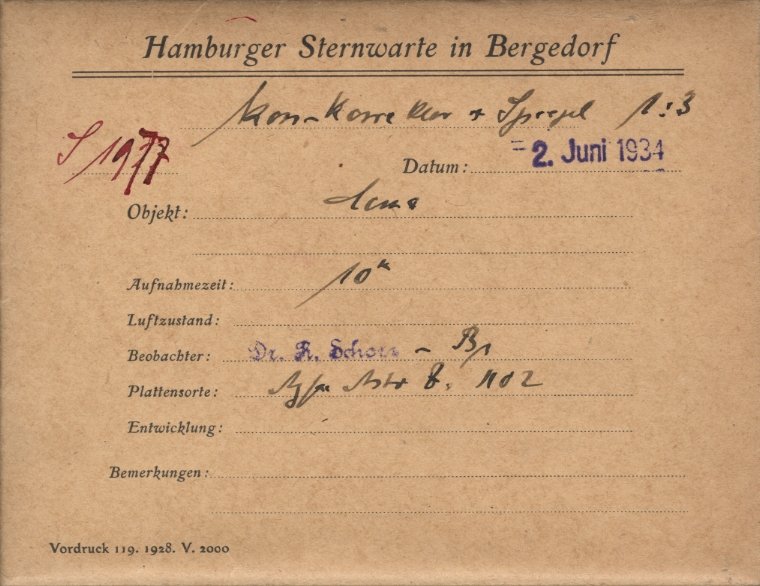 Hamburger Sternwarte in Bergedorf
Korrektor + Spiegel 1:3
S 1977
Datum: = 2. Juni 1934
Objekt:
Aufnahmezeit: 10
Luftzustand:
Beobachter: Dr. K. Schorr -
Plattensorte: Agfa Astro 1102
Entwicklung:
Bemerkungen:
Vordruck 119. 1928. V. 2000